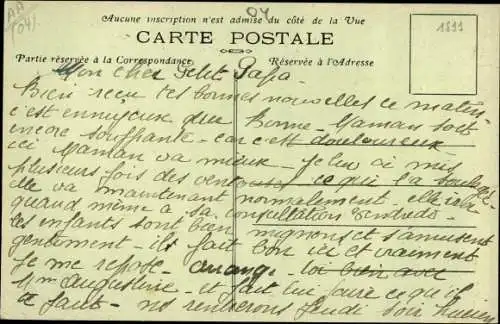 AA
04
04
1899
Aucune inscription n'est admise du côté de la Vue
CARTE POSTALE
Partie réservée à la Correspondance
Réservée à l'Adresse
Mon cher Petit Papa.
Bien reçu tes bonnes nouvelles ce matin.
c'est ennuyeux que Bonne-Maman soit
encore souffrante - car c'est douloureux
ici Maman va mieux. Je lui ai mis
plusieurs fois des ventouses ce qui l'a soulagé
elle va maintenant normalement. elle ira
quand même à sa consultation
les enfants sont bien mignons et s'amusent
gentiment - ils fait bon ici et vraiment
je me repose. arrange toi bien avec
Mme Augustine et fait lui faire ce qu'il
faut - ns rentrerons jeudi soir